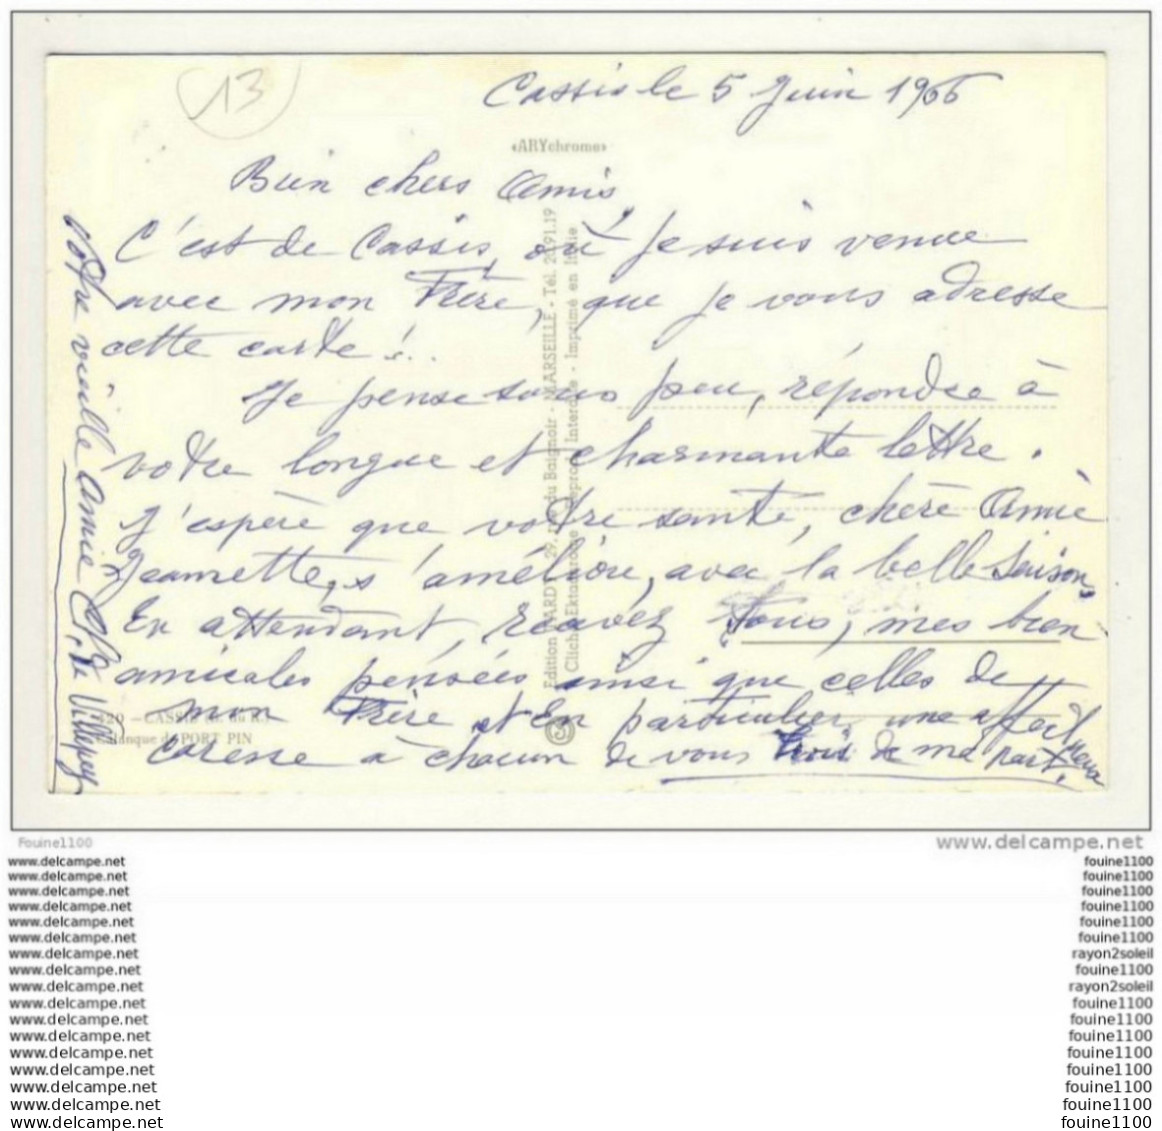 13
Cassis le 5 Juin 1966
«ARYchrome»
Bien chers Amis,
C'est de Cassis, où je suis venue
avec mon Frère, que je vous adresse
cette carte !..
Je pense sous peu, répondre à
votre longue et charmante lettre.
J'espère que votre santé, chère Amie
Jeannette, s'améliore, avec la belle Saison,
En attendant, recevez tous, mes bien
amicales pensées ainsi que celles de
mon Frère et en particulier, une affect
caresse à chacun de vous trois de ma part.
Votre vieille Amie
de Villepey
Edition - MARSEILLE - Tél. 20.91.19
Imprimé en Italie
CASSIS (B. du R.)
Calanque de PORT PIN
Fouine1100
www.delcampe.net
www.delcampe.net fouine1100
www.delcampe.net fouine1100
www.delcampe.net fouine1100
www.delcampe.net fouine1100
www.delcampe.net fouine1100
www.delcampe.net fouine1100
www.delcampe.net rayon2soleil
www.delcampe.net fouine1100
www.delcampe.net rayon2soleil
www.delcampe.net fouine1100
www.delcampe.net fouine1100
www.delcampe.net fouine1100
www.delcampe.net fouine1100
www.delcampe.net fouine1100
www.delcampe.net fouine1100
www.delcampe.net fouine1100
www.delcampe.net fouine1100